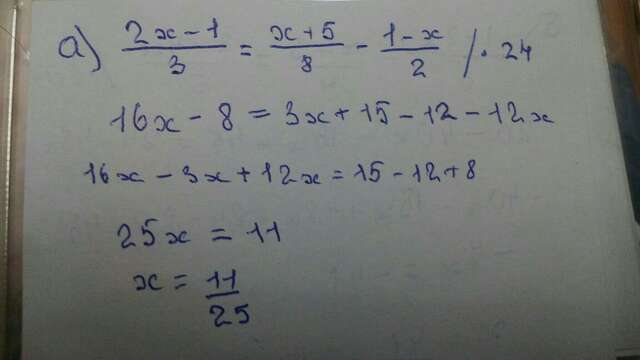 а) \frac{2x-1}{3} = \frac{x+5}{8} - \frac{1-x}{2} / · 24
16x - 8 = 3x + 15 - 12 - 12x
16x - 3x + 12x = 15 - 12 + 8
25x = 11
x = \frac{11}{25}